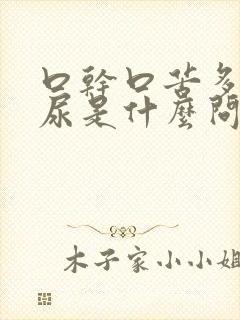 口幹口苦多
尿是什麼問
木子家小小姐